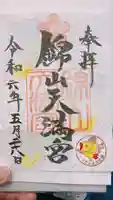 奉拝
錦山天満宮
令和六年五月六日